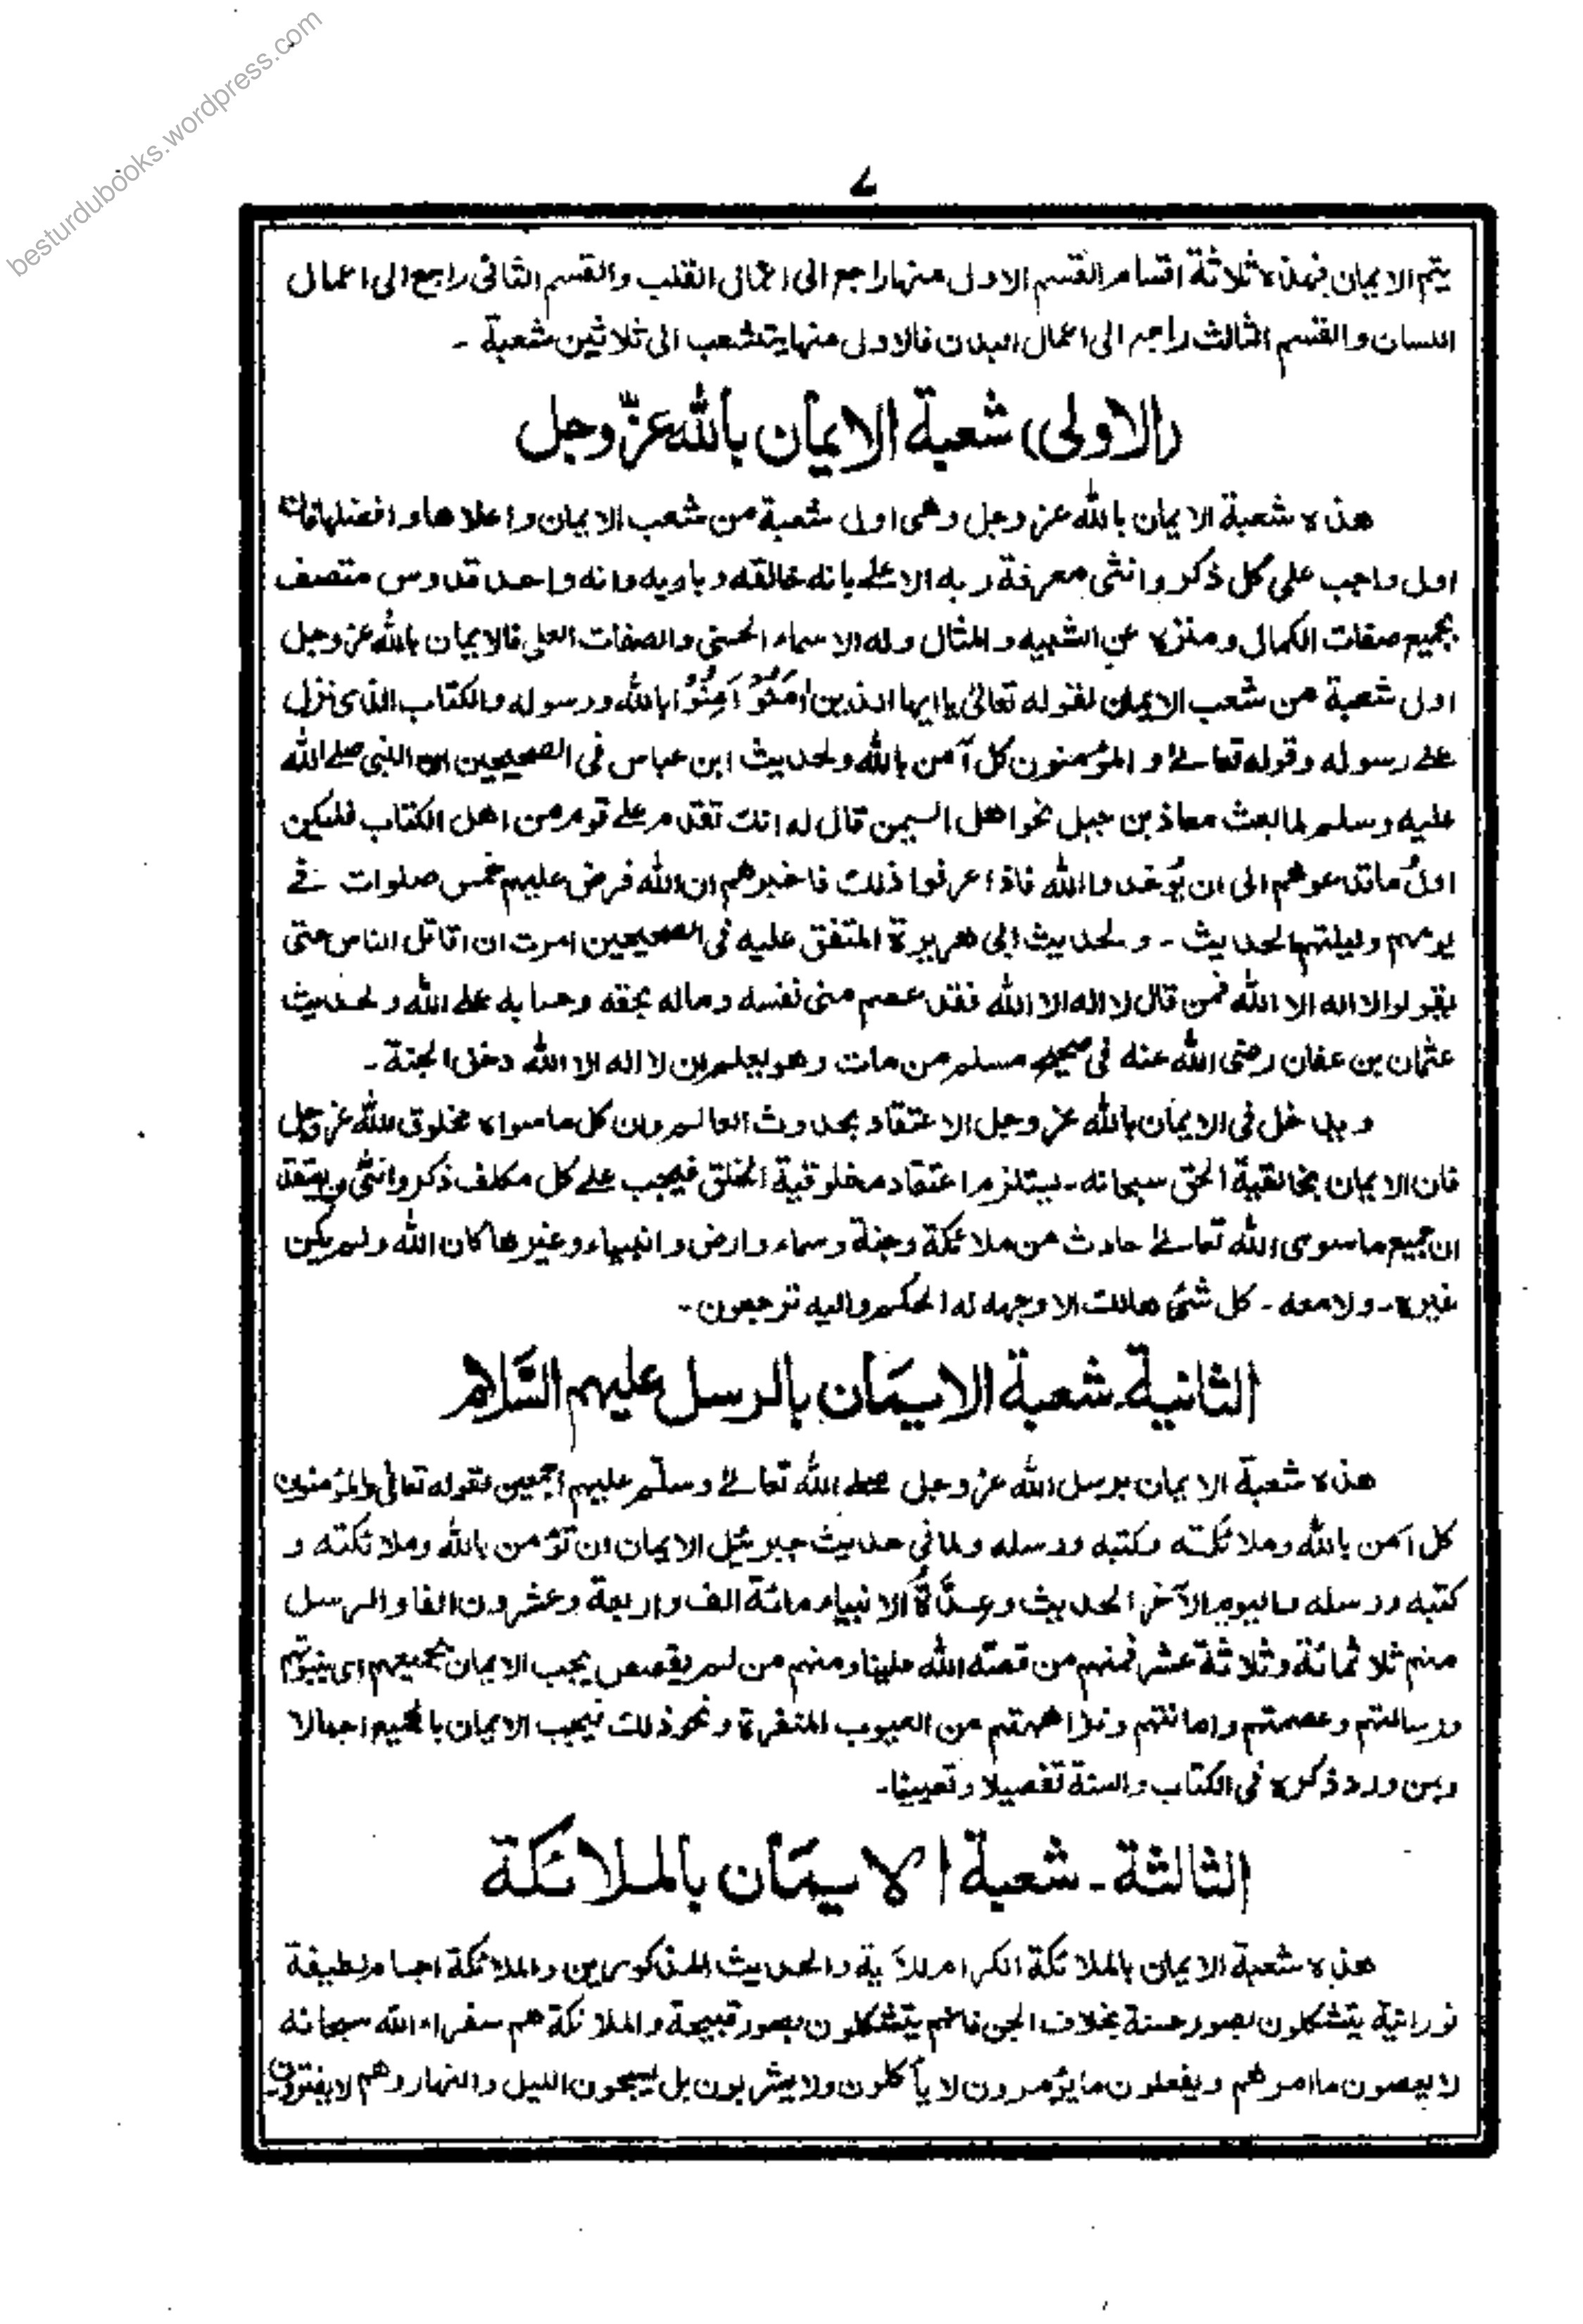 besturdubooks.wordpress.com
۷
يتم الايمان فهذه ثلاثة اقسام القسم الاول منها راجع الى اعمال القلب والقسم الثانى راجع الى اعمال
اللسان والقسم الثالث راجع الى اعمال البدن فالاولى منها يتشعب الى ثلاثين شعبة ۔
(الاولى) شعبة الايمان بالله عزّ وجل
هذه شعبة الايمان بالله عز وجل وهى اولى شعبة من شعب الايمان واعلاها وافضلها فان
اول واجب على كل ذكر وانثى معرفة ربه الاعلى بانه خالقه وباريه وانه واحد قدوس متصف
بجميع صفات الكمال ومنزه عن الشبيه والمثال وله الاسماء الحسنى والصفات العلى فالايمان بالله عز وجل
اولى شعبة من شعب الايمان لقوله تعالى يا ايها الذين اٰمَنُوْٓ اٰمِنُوْا بالله ورسوله والكتاب الذى نزل
على رسوله وقوله تعالى والمؤمنون كل آمن بالله ولحديث ابن عباس فى الصحيحين ان النبى صلى الله
عليه وسلم لما بعث معاذ بن جبل نحو اهل اليمن قال له انك تقدم على قوم من اهل الكتاب فليكن
اولُ ما تدعوهم الى ان يُوَحّدوا الله فاذا عرفوا ذلك فاخبرهم ان الله فرض عليهم خمس صلوات فى
يومهم وليلتهم الحديث ۔ ولحديث ابى هريرة المتفق عليه فى الصحيحين امرت ان اقاتل الناس حتى
يقولوا لا اله الا الله فمن قال لا اله الا الله فقد عصم منى نفسه وماله بحقه وحسابه على الله ولحديث
عثمان بن عفان رضى الله عنه فى صحيح مسلم من مات وهو يعلم ان لا اله الا الله دخل الجنة ۔
ويدخل فى الايمان بالله عز وجل الاعتقاد بحدوث العالم وان كل ما سواه مخلوق لله عز وجل
فان الايمان بخالقية الحق سبحانه ۔ يستلزم اعتقاد مخلوقية الخلق فيجب على كل مكلف ذكر وانثى ان يعتقد
ان جميع ما سوى الله تعالى حادث من ملائكة وجنة وسماء وارض وانبياء وغيرها كان الله ولم يكن
غيره ۔ ولا معه ۔ كل شئ هالك الا وجهه له الحكم واليه ترجعون ۔
الثانية ۔ شعبة الايمان بالرسل عليهم السَّلام
هذه شعبة الايمان برسل الله عز وجل صلى الله تعالى وسلّم عليهم اجمعين لقوله تعالى والمؤمنون
كل آمن بالله وملائكته وكتبه ورسله ولما فى حديث جبرئيل الايمان ان تؤمن بالله وملائكته و
كتبه ورسله واليوم الآخر الحديث وعِدَّةُ الانبياء مائة الف واربعة وعشرون الفا والرسل
منهم ثلاثمائة وثلاثة عشر فمنهم من قصه الله علينا ومنهم من لم يقصص يجب الايمان بجميعهم اى بنبوتهم
ورسالتهم وعصمتهم وامانتهم ونزاهتهم من العيوب المنفرة ونحو ذلك فيجب الايمان بالجميع اجمالا
وبمن ورد ذكره فى الكتاب والسنة تفصيلا وتعيينا ۔
الثالثة ۔ شعبة الايمان بالملائكة
هذه شعبة الايمان بالملائكة الكرام للآية والحديث المذكورين والملائكة اجسام لطيفة
نورانية يتشكلون بصور حسنة بخلاف الجن فانهم يتشكلون بصور قبيحة والملائكة هم سفراء الله سبحانه
لا يعصون ما امرهم ويفعلون ما يؤمرون لا يأكلون ولا يشربون بل يسبحون الليل والنهار وهم لا يفترون۔